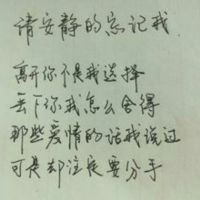 请安静的忘记我
离开你不是我选择
丢下你我怎么舍得
那些爱情的话我说过
可是却注定要分手